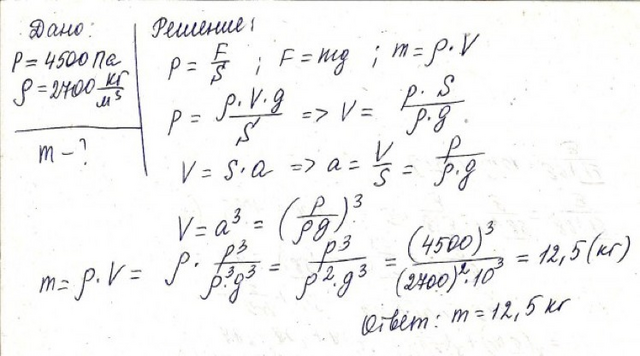 Дано:
P = 4500 Па
ρ = 2700 кг/м³
m - ?
Решение:
P = F/S ; F = mg ; m = ρ·V
P = ρ·V·g/S => V = p·S/ρ·g
V = S·a => a = V/S = p/ρ·g
V = a³ = (p/ρg)³
m = ρ·V = ρ· p³/ρ³g³ = p³/ρ²·g³ = (4500)³/(2700)²·10³ = 12,5 (кг)
Ответ: m = 12,5 кг